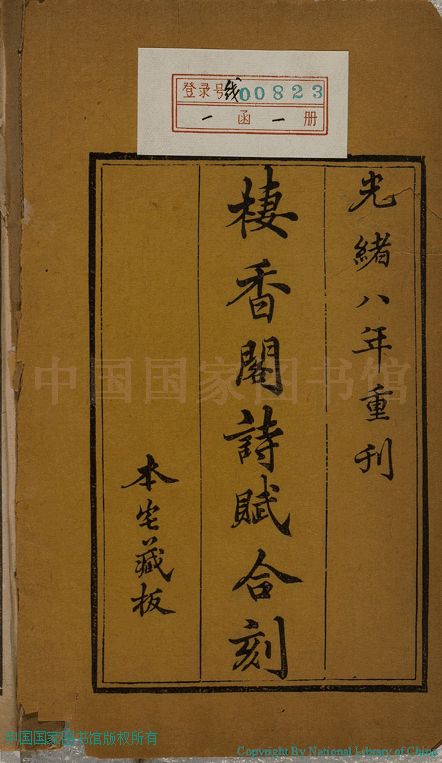 登录号线00823
一函一册
光緒八年重刊
棲香閣詩賦合刻
本宅藏板
中国国家图书馆
中国国家图书馆版权所有
Copyright By National Library of China